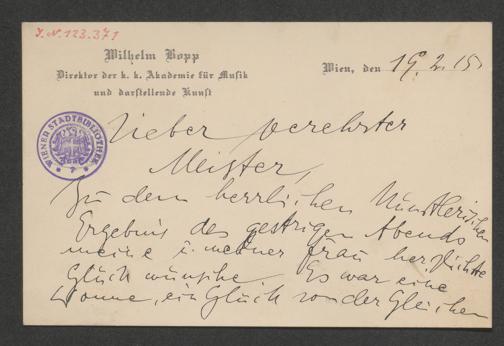 J. N. 123.371
Wilhelm Bopp
Direktor der k. k. Akademie für Musik
und darstellende Kunst
Wien, den 19. 2. 15.
WIENER STADTBIBLIOTHEK
Lieber verehrter
Meister,
Zu dem herrlichen künstlerischen
Ergebnis des gestrigen Abends
meine u. meiner Frau herzlichste
Glückwünsche. Es war eine
Wonne, ein Glück sondergleichen